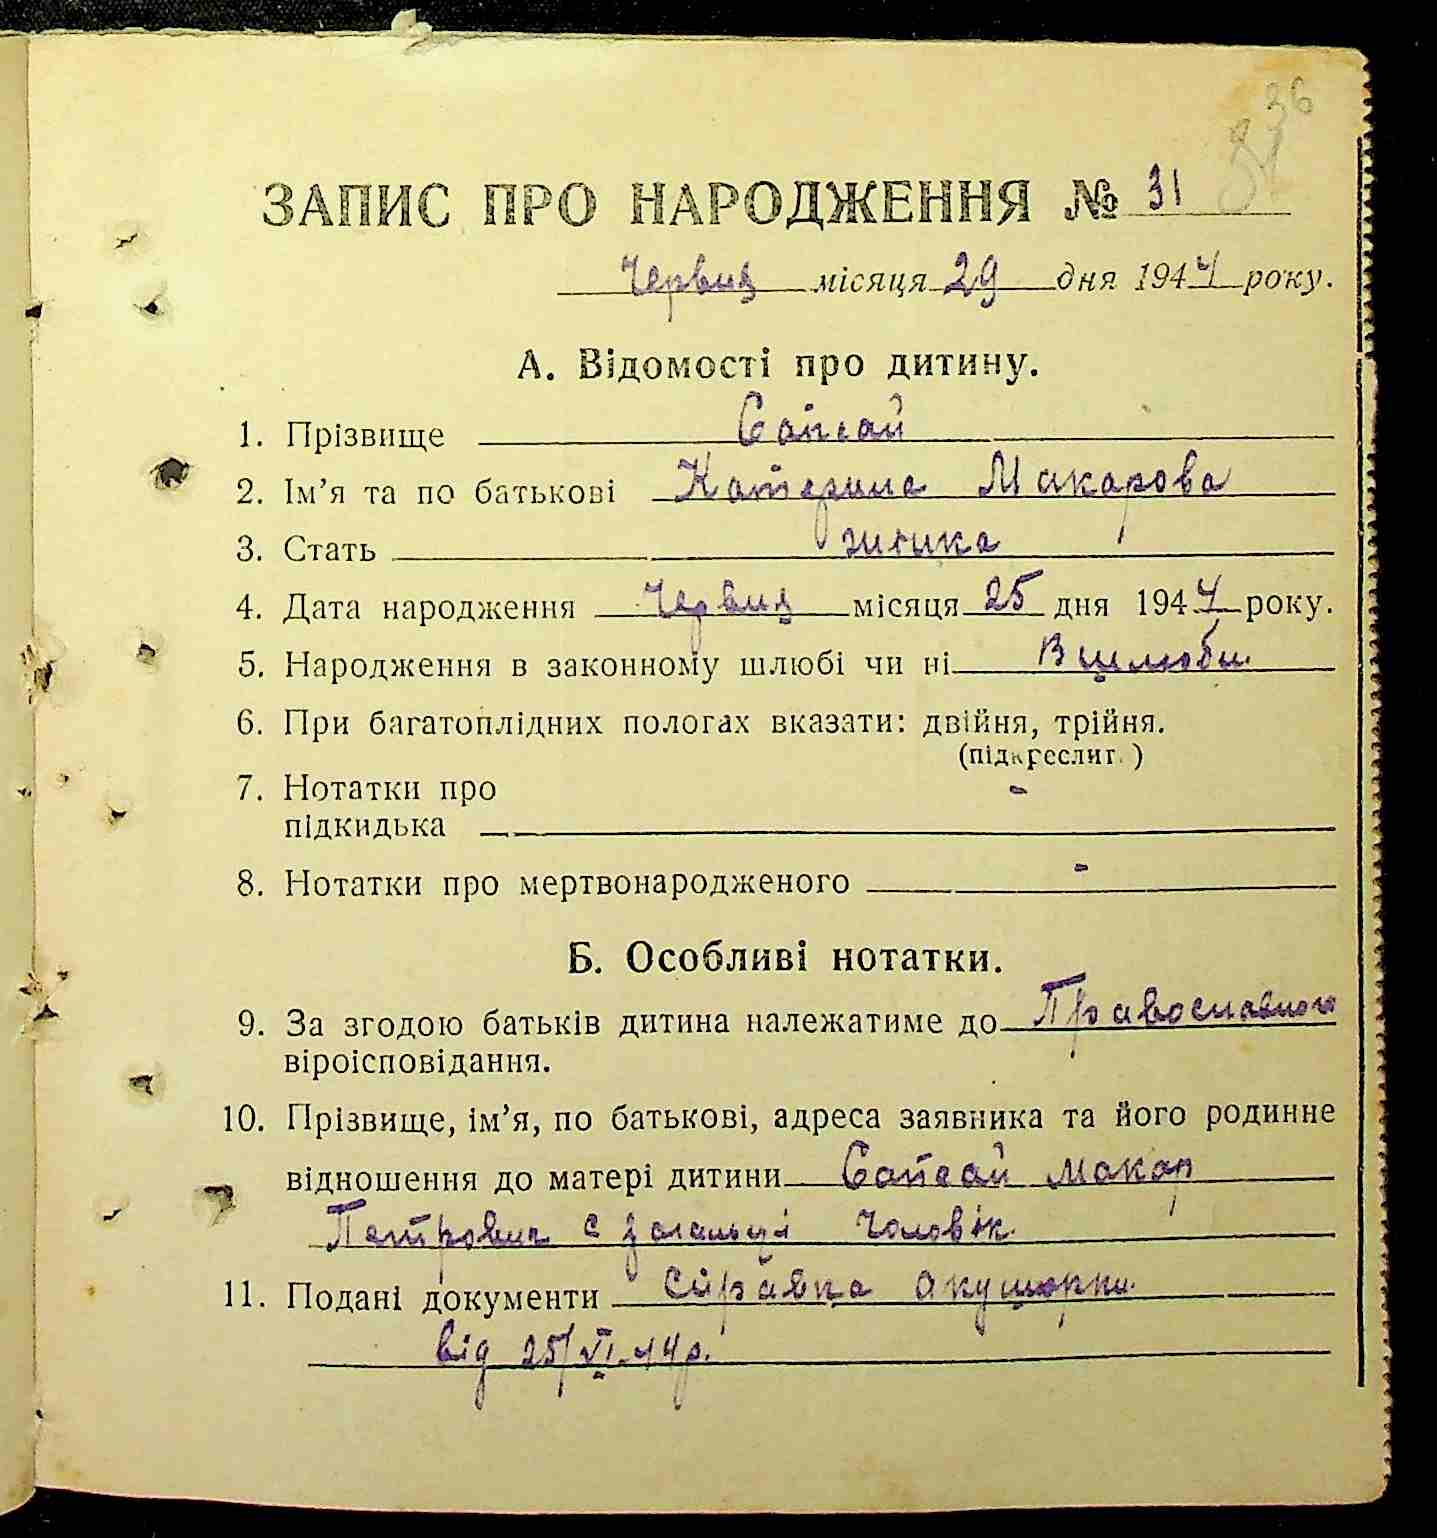 36
31
ЗАПИС ПРО НАРОДЖЕННЯ № 31
Червня місяця 29 дня 1944 року.
А. Відомості про дитину.
1. Прізвище Сапсай
2. Ім’я та по батькові Катерина Макарова
3. Стать жінка
4. Дата народження Червня місяця 25 дня 1944 року.
5. Народження в законному шлюбі чи ні В шлюби
6. При багатоплідних пологах вказати: двійня, трійня.
(підкреслит.)
7. Нотатки про -
підкидька
8. Нотатки про мертвонародженого -
Б. Особливі нотатки.
9. За згодою батьків дитина належатиме до Православного
віроісповідання.
10. Прізвище, ім’я, по батькові, адреса заявника та його родинне
відношення до матері дитини Сапсай Макар
Петрович с чоловік
11. Подані документи Справка акушорки
від 25/VI-44р.